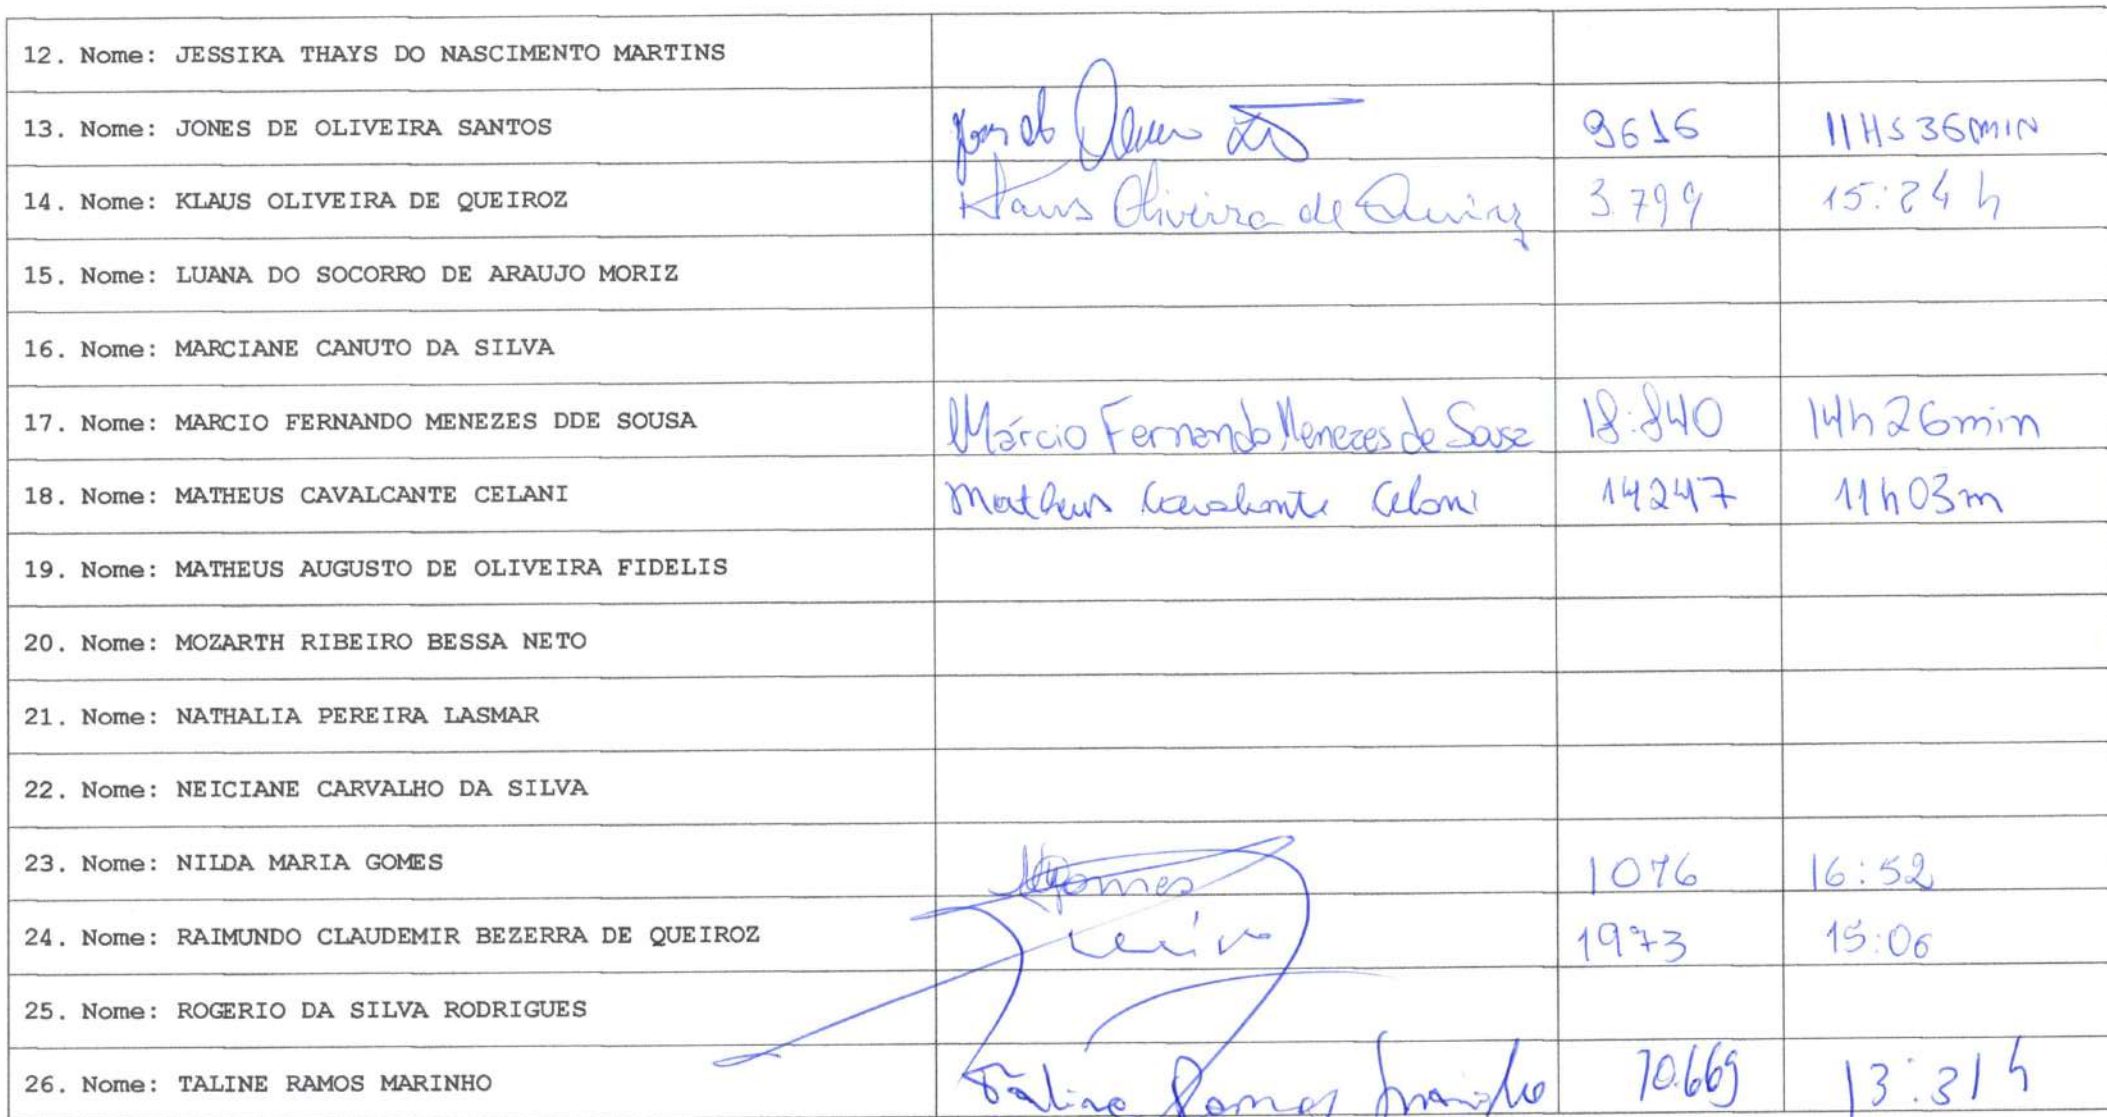 12. Nome: JESSIKA THAYS DO NASCIMENTO MARTINS
13. Nome: JONES DE OLIVEIRA SANTOS 9616 11HS36MIN
14. Nome: KLAUS OLIVEIRA DE QUEIROZ Klaus Oliveira de Queiroz 3.799 15:24 h
15. Nome: LUANA DO SOCORRO DE ARAUJO MORIZ
16. Nome: MARCIANE CANUTO DA SILVA
17. Nome: MARCIO FERNANDO MENEZES DDE SOUSA Márcio Fernando Menezes de Sousa 18.840 14h26min
18. Nome: MATHEUS CAVALCANTE CELANI Matheus Cavalcante Celani 14247 11h03m
19. Nome: MATHEUS AUGUSTO DE OLIVEIRA FIDELIS
20. Nome: MOZARTH RIBEIRO BESSA NETO
21. Nome: NATHALIA PEREIRA LASMAR
22. Nome: NEICIANE CARVALHO DA SILVA
23. Nome: NILDA MARIA GOMES NGomes 1076 16:52
24. Nome: RAIMUNDO CLAUDEMIR BEZERRA DE QUEIROZ 1973 15:06
25. Nome: ROGERIO DA SILVA RODRIGUES
26. Nome: TALINE RAMOS MARINHO Taline Ramos Marinho 10.669 13:31h